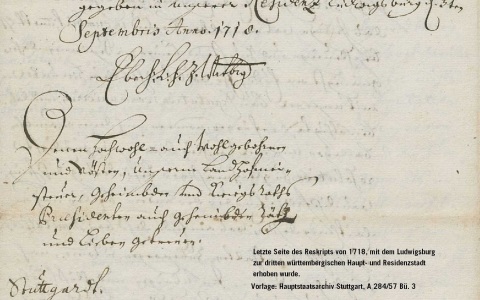 gegeben in unserer Residenz Ludwigsburg den
Septembris Anno. 1718.
Denen Hochwohl= auch Wohlgebohrnen
und Vösten, Unserm Landhofmei=
ster, Geheimbden und Kriegs Raths
Præsidenten auch geheimbden Räth
und Lieben getreuen.
Stuttgardt.
Letzte Seite des Reskripts von 1718, mit dem Ludwigsburg
zur dritten württembergischen Haupt- und Residenzstadt
erhoben wurde.
Vorlage: Hauptstaatsarchiv Stuttgart, A 284/57 Bü. 3